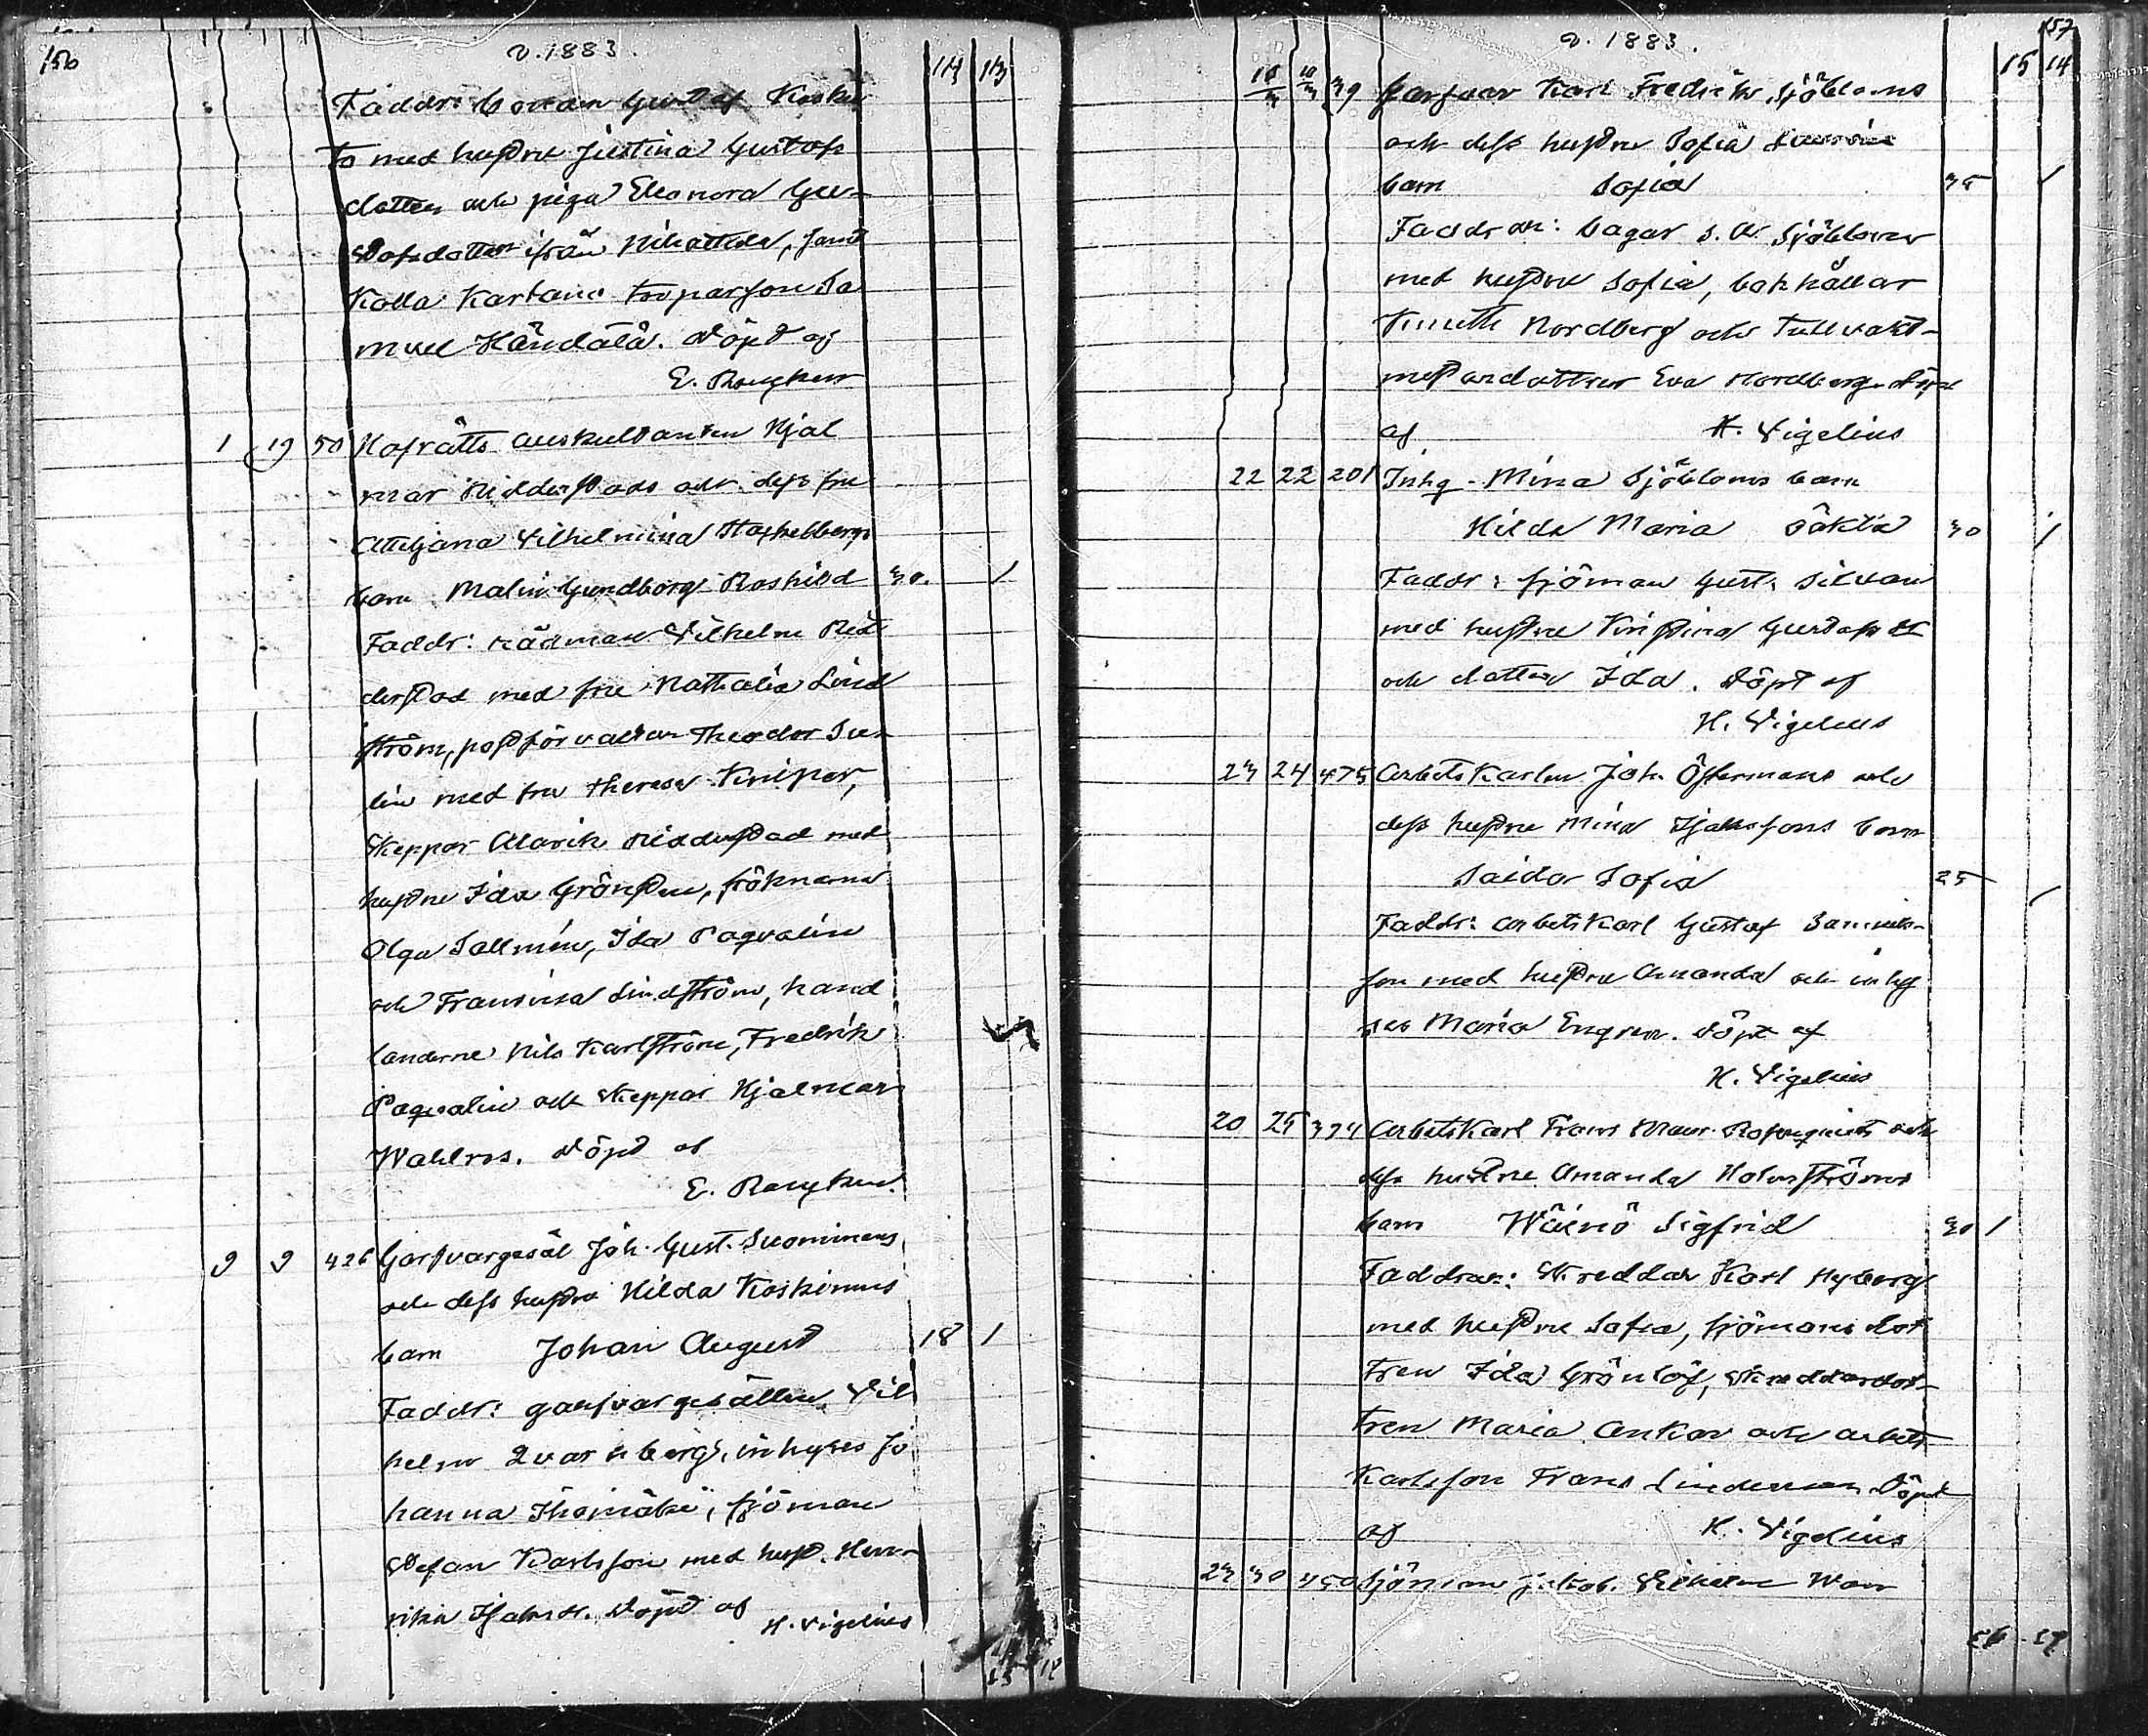 156
v. 1883.
14 13
Faddr: bonden Gustaf Koski
to med hustru Justina Gustafs
dotter och piga Eleonora Gu-
stafsdotter ifrån Nihattula, samt
Kolla Kartano torparson Sa
muel Händälä. Döpt af
E. Bergken
1 19 50 Hofrätts auskultanten Hjal
mar Ridderstads och dess fru
Wilhelmina Stachelbergs
barn Malin Gundborg Roshild 30. 1
Faddr: rådman Vilhelm Rid
derstad med fru Nathalia Lind
ström, postförvaltar Theodor Su-
lin med fru Theresa Kniper,
Skeppar Alarik Ridderstad med
hustru Ida Grönstru, fröknarna
Olga Sallmén, Ida Paqvalin
och Fransiska Lindström, hand
landerne Nils Karlström, Fredrik
Paqvalin och Skeppar Hjalmar
Wahlros. Döpt af
E. Bergken.
9 9 426 Garfvargesäl Joh. Gust. Suominens
och dess hustru Hilda Koskinens
barn Johan August 18 1
Faddr: garfvargesällen Vil
helm Qvarnberg, inhyses Jo
hanna Ihamäki, sjöman
Stefan Karlsson med hust. Hen-
rika Isaksdr. Döpt af H. Vigelius
15 12
157
v. 1883.
15 14
18/3 18/3 39 Garfvar Karl Fredrik Sjöbloms
och dess hustru Sofia
barn Sofia 35 1
Faddrar: bagar S. W. Sjöblom
med hustru Sofia, bokhållar
Knuth Nordberg och Tullvakt-
mestardottren Eva Nordberg. Döpt
af H. Vigelius
22 22 201 Inhg. Mina Sjöbloms barn
Hilda Maria oäkta 30 1
Faddr: sjöman Gust. Silvan
med hustru Kristina Gustafsdr
och dotter Ida. Döpt af
H. Vigelius
23 24 475 Arbetskarlen Joh. Östermans och
dess hustru Mina Isakssons barn
Saida Sofia 25 1
Faddr: arbetskarl Gustaf Samuels-
son med hustru Amanda och inhy
ses Maria Engren. Döpt af
H. Vigelius
20 25 374 Arbetskarl Frans Maur. Rosenqvists och
dess hustru Amanda Holmströms
barn Wäinö Sigfrid 30 1
Faddrar: Skreddar Karl Nyberg
med hustru Sofia, sjömans dot
tren Ida Grönlöf, Skreddardot-
tren Maria Ankar och arbets
Karlsson Frans Lindeman. Döpt
af H. Vigelius
23 30 450 Sjöman Jakob Vilhelm